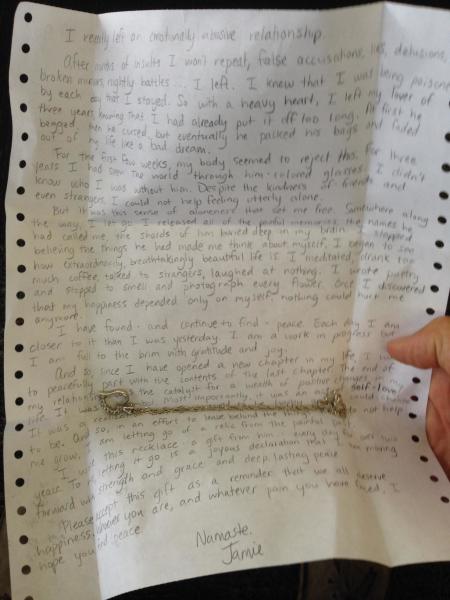 I recently left an emotionally abusive relationship.
After months of insults I won't repeat, false accusations, lies, delusions,
broken mirrors, nightly battles... I left. I knew that I was being poisoned
by each day that I stayed. So with a heavy heart, I left my lover of
three years, knowing that I had already put it off too long. At first he
begged, then he cursed, but eventually he packed his bags and faded
out of my life like a bad dream.
For the first few weeks, my body seemed to reject this. For three
years I had seen the world through him-colored glasses. I didn't
know who I was without him. Despite the kindness of friends and
even strangers, I could not help feeling utterly alone.
But it was this sense of aloneness that set me free. Somewhere along
the way, I let go. I released all of the painful memories, the names he
had called me, the shards of him buried deep in my brain. I stopped
believing the things he had made me think about myself. I began to see
how extraordinarily, breathtakingly beautiful life is. I meditated, drank too
much coffee, talked to strangers, laughed at nothing. I wrote poetry
and stopped to smell and photograph every flower. Once I discovered
that my happiness depended only on myself, nothing could hurt me
anymore.
I have found - and continue to find - peace. Each day I am
closer to it than I was yesterday. I am a work in progress but
I am full to the brim with gratitude and joy.
And so, since I have opened a new chapter in my life, I
to peacefully part with the contents of the last chapter. The end of
my relationship the catalyst for a wealth of positive changes in my
life. It was Most importantly, it was an self-love
It was a
to be. And so, in an effort to leave behind the not help
me grow, I am letting go of a relic from the painful past.
I this necklace - a gift from him - every day for over two
years. To letting it go is a joyous declaration that I am moving
forward with strength and grace and deep, lasting peace.
Please accept this gift as a reminder that we all deserve
happiness. you are, and whatever pain you have faced, I
hope you peace.
Namaste.
Jamie